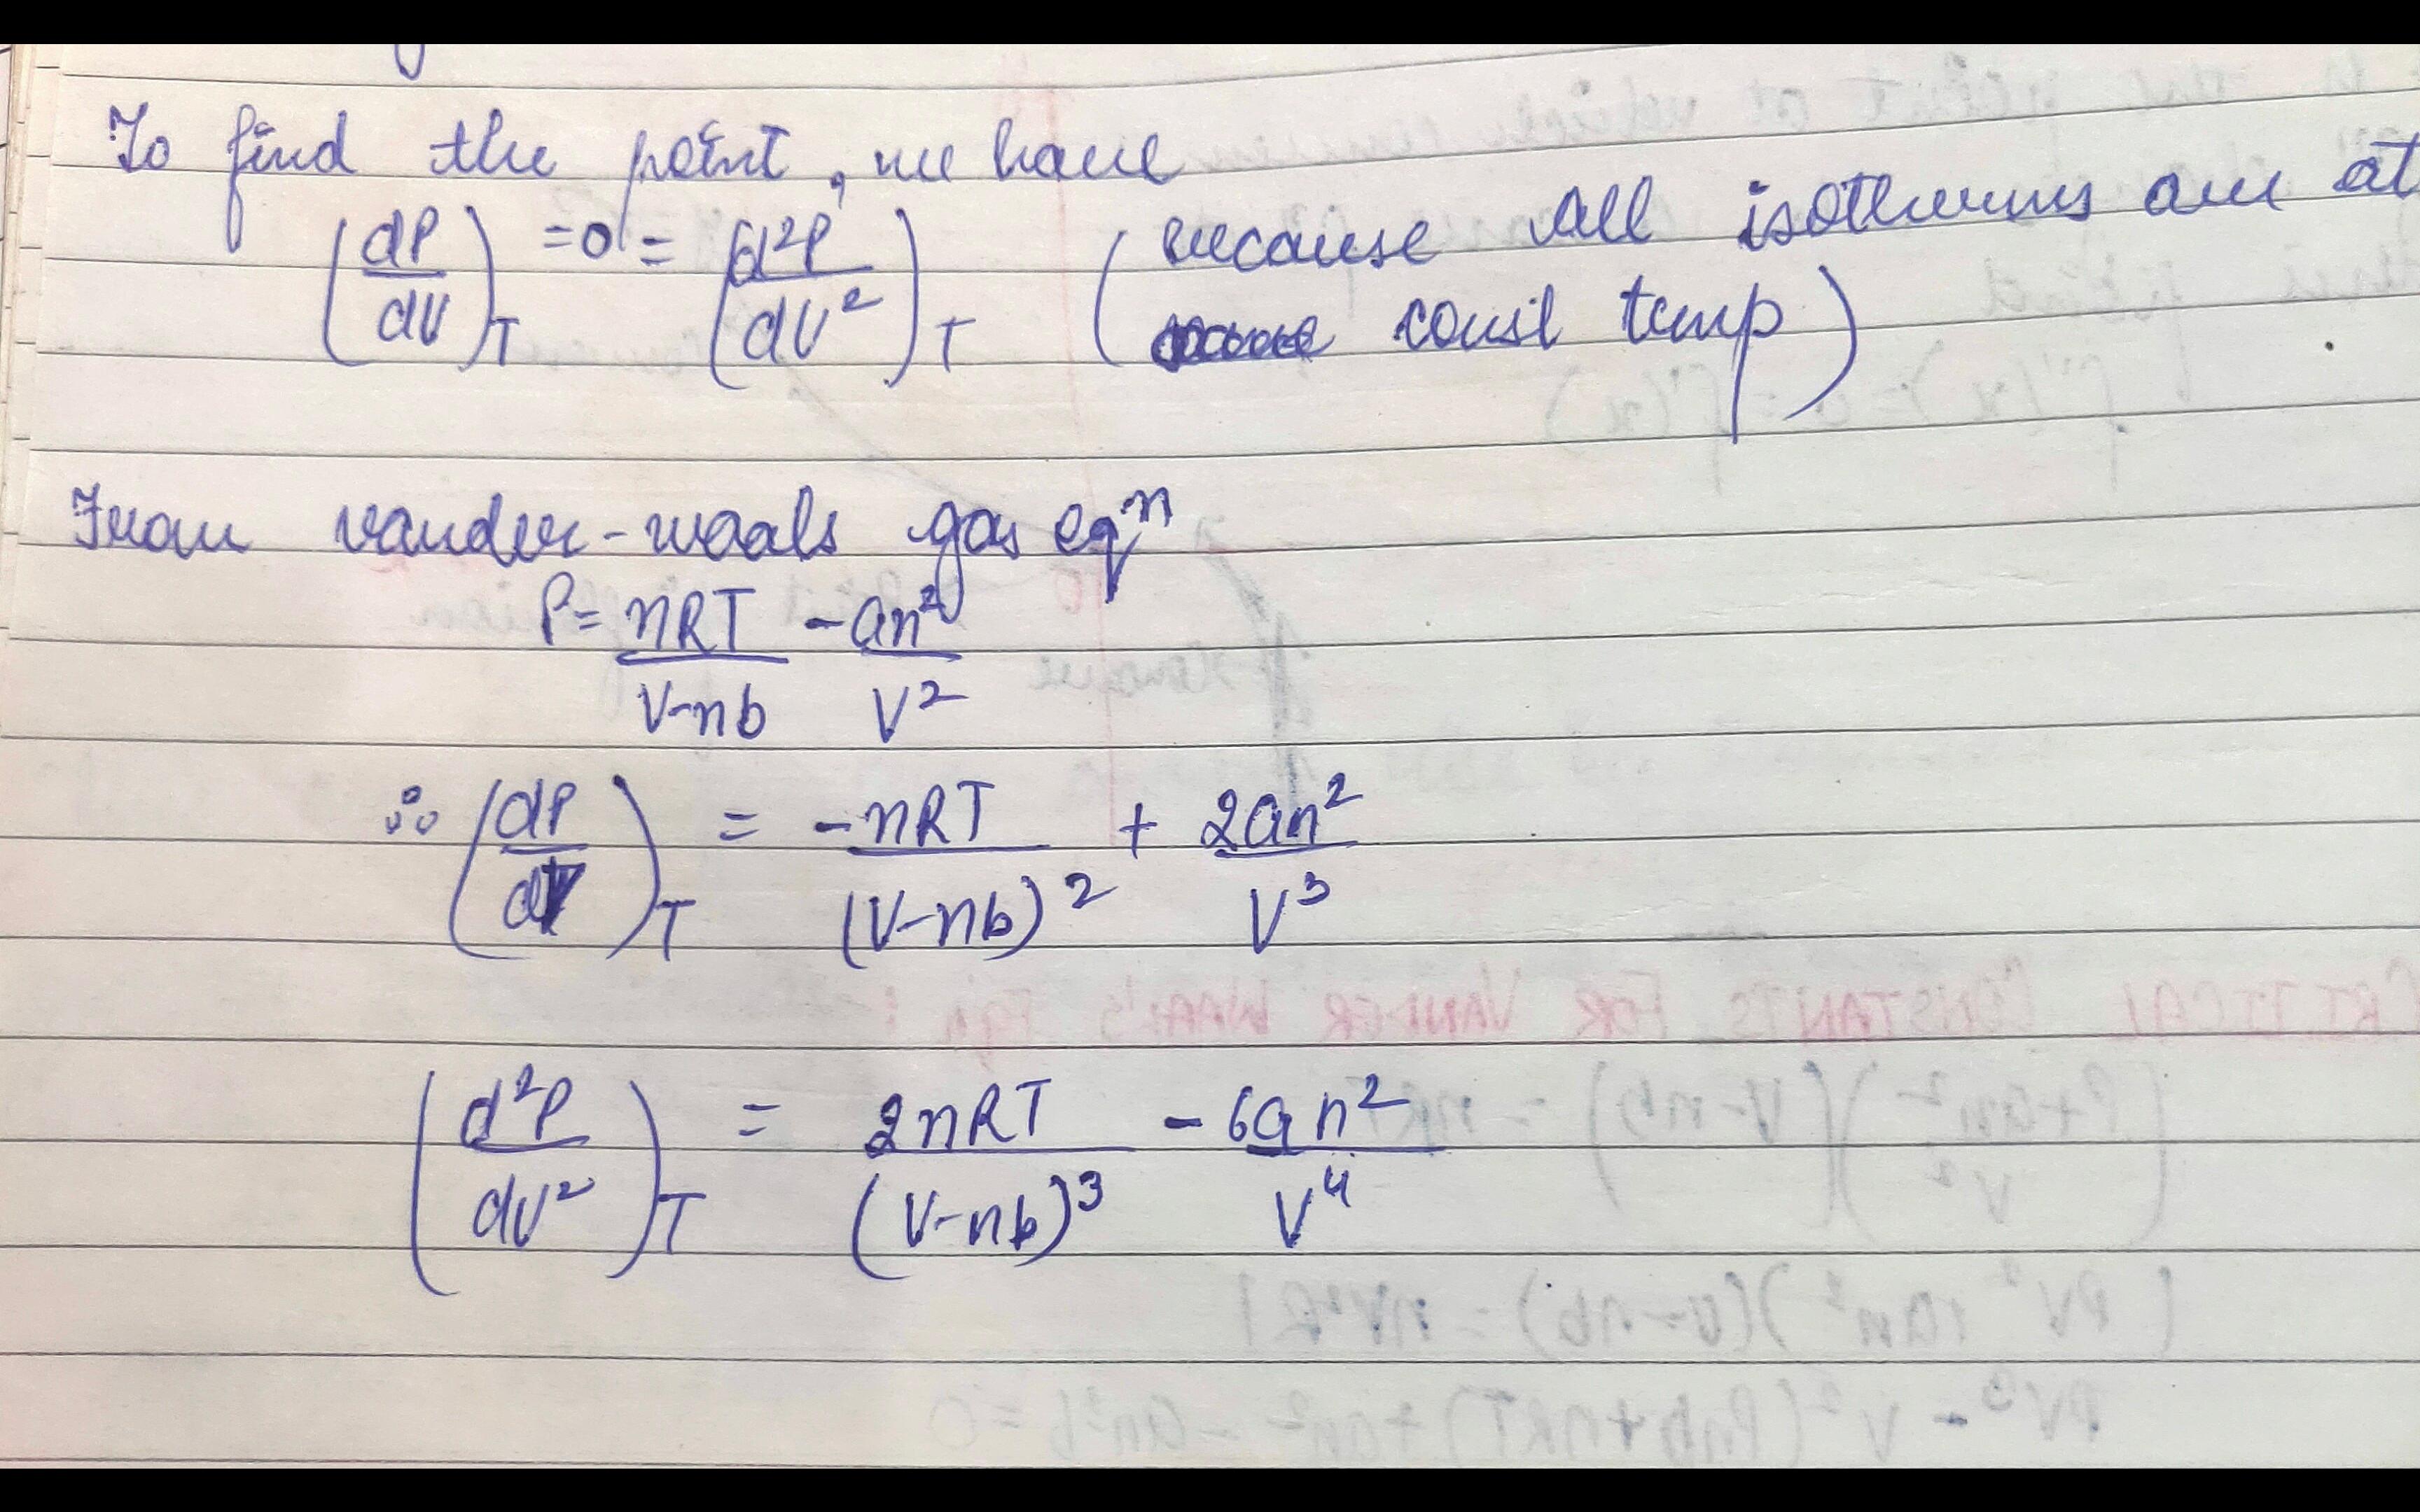 To find the point, we have
(dP/dV)_T = 0 = (d²P/dV²)_T (because all isotherms are at
const temp)
From vander-waals gas eqⁿ
P = nRT/V-nb - an²/V²
∴ (dP/dV)_T = -nRT/(V-nb)² + 2an²/V³
(d²P/dV²)_T = 2nRT/(V-nb)³ - 6an²/V⁴